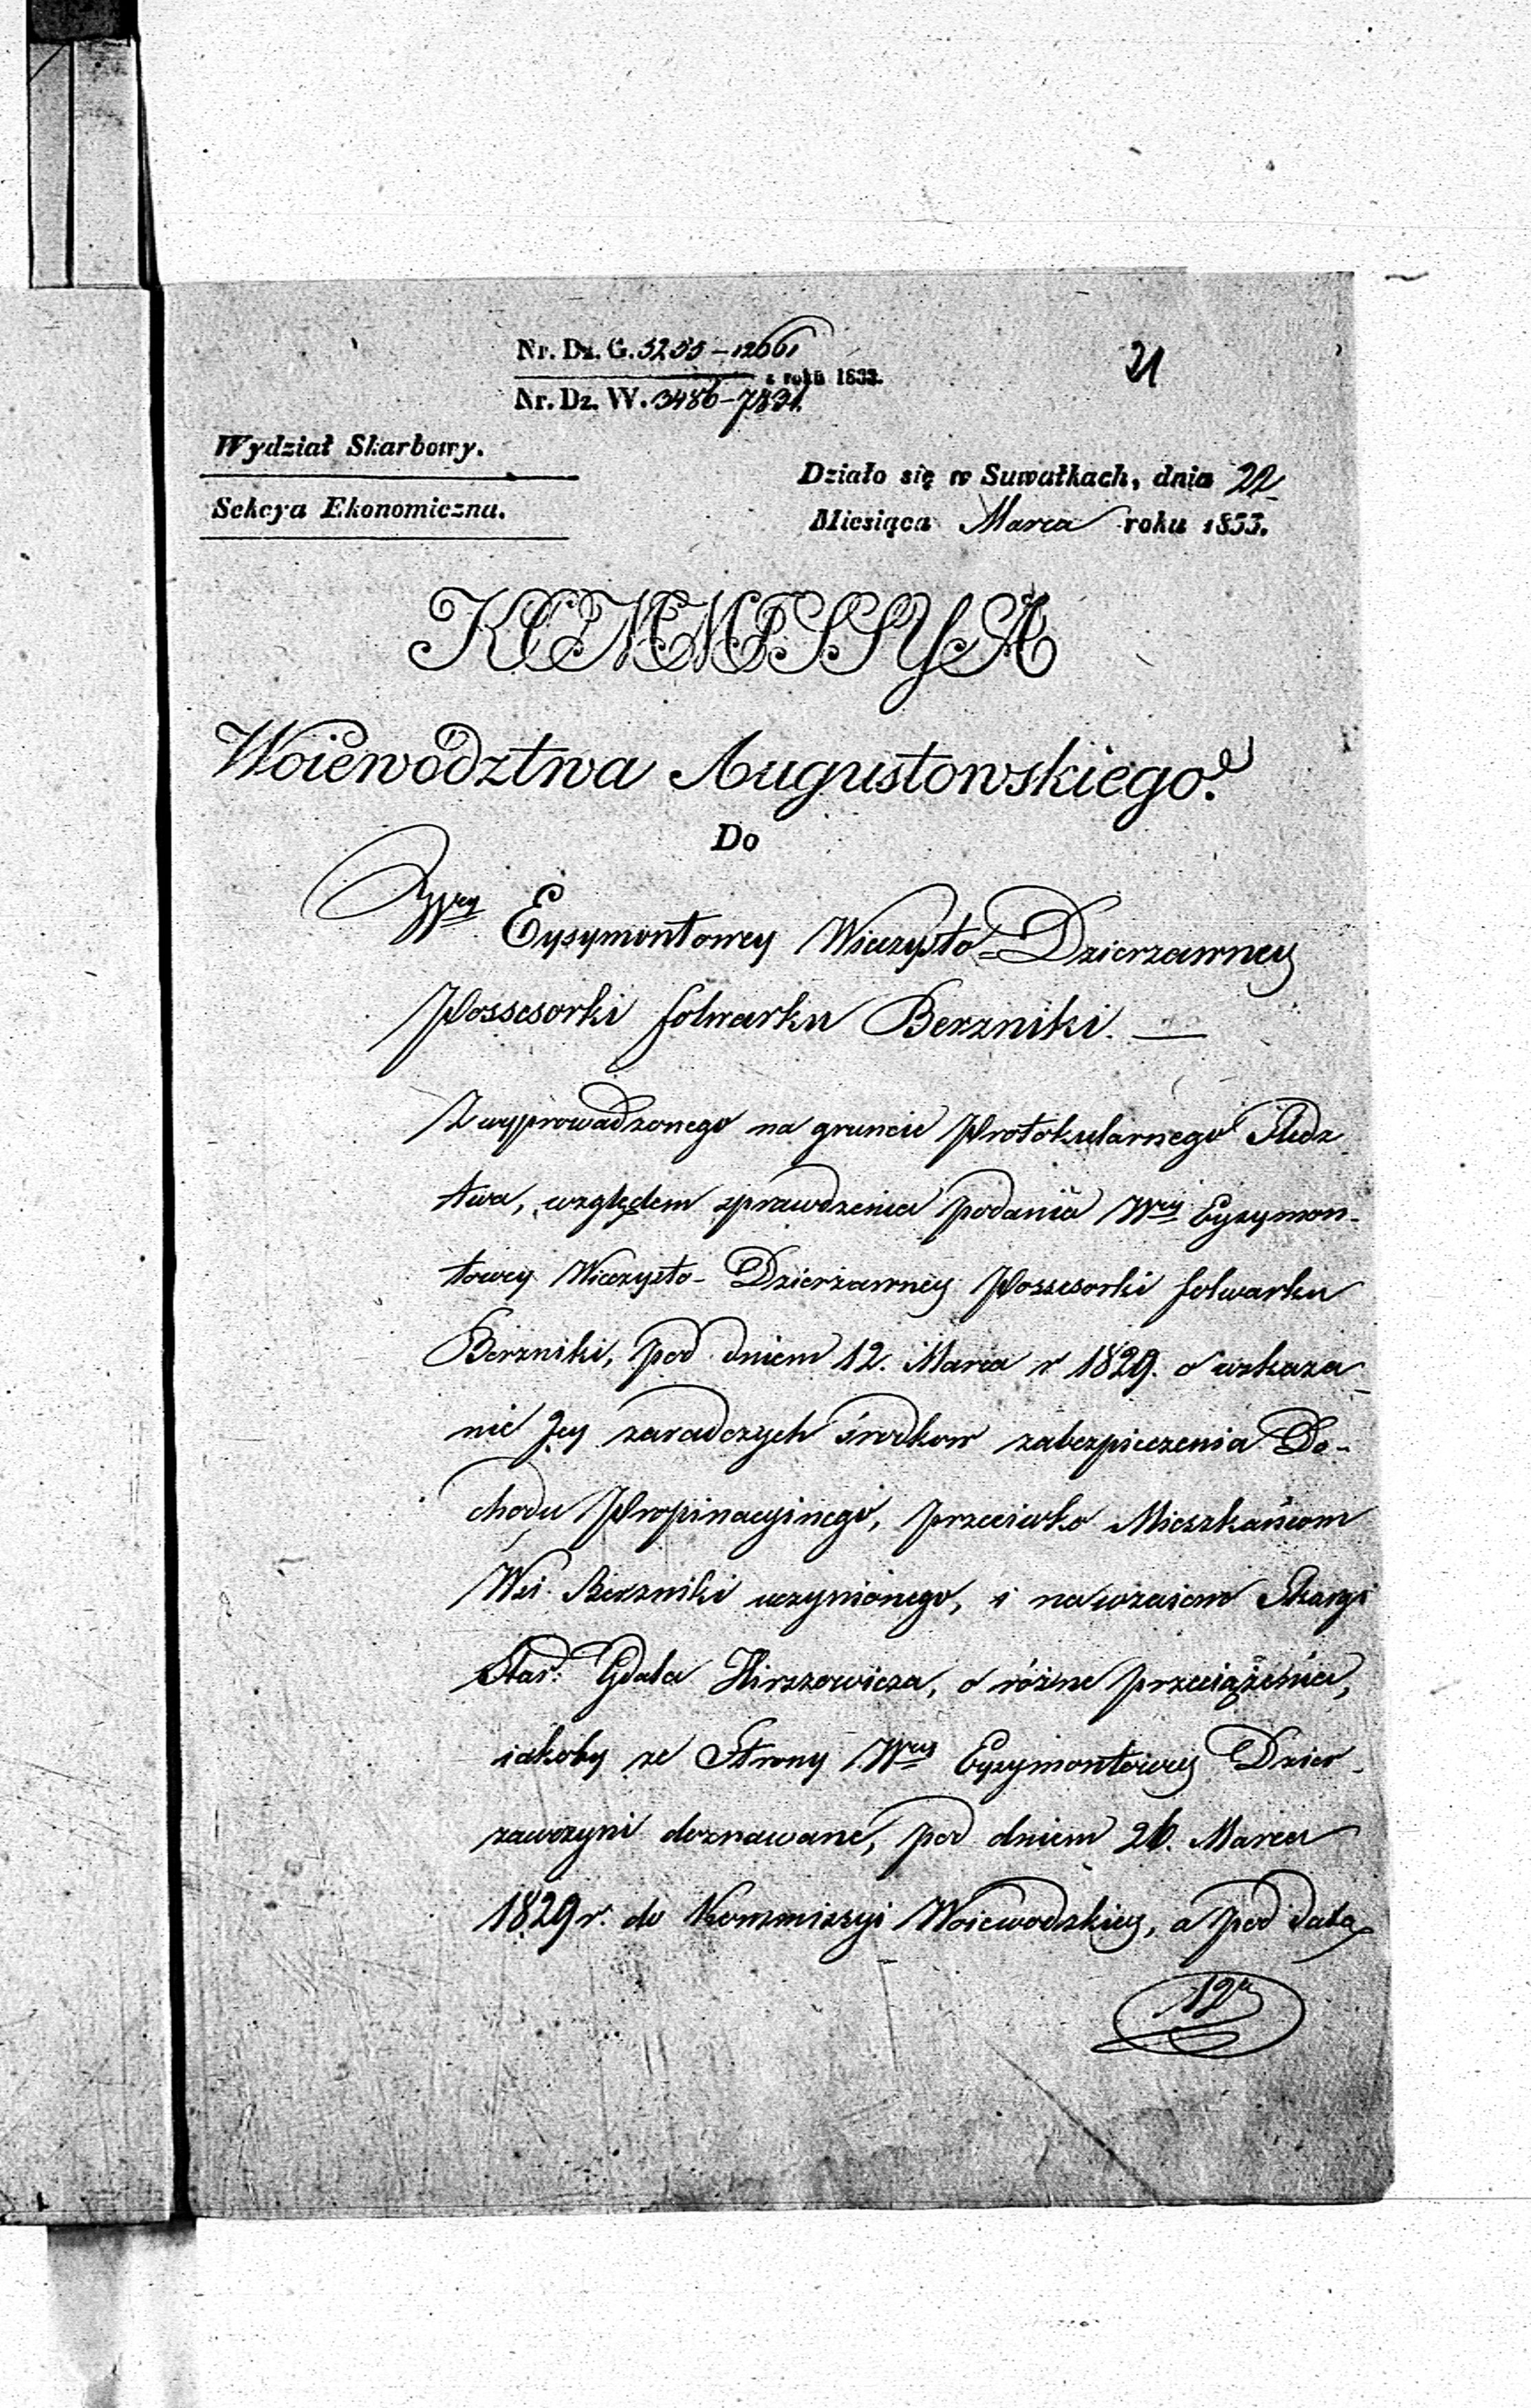 Nr. Dz. G. 5255 – 12661
21
z roku 1833.
Nr. Dz. W. 3486 – 7831
Wydział Skarbowy.
Działo się w Suwałkach, dnia 22
Sekcya Ekonomiczna.
Miesiąca Marca roku 1833.
KOMMISSYA
Woiewództwa Augustowskiego.
Do
Wney Eysymontowey Wieczysto=Dzierzawney
Possesorki folwarku Berzniki. —
Z wyprowadzonego na gruncie Protokularnego Sledz
twa, względem sprawdzenia podania Wney Eysymon-
towey Wieczysto-Dzierżawney Possesorki folwarku
Berzniki, pod dniem 12. Marca r 1829. o wskaza
nie Jey zaradczych środkow zabezpieczenia Do-
chodu Propinacyinego, przeciwko Mieszkańcom
Wsi Berzniki uczynionego, i nawzaiem Skargi
Star: Gdala Hirszowicza, o różne przeciążenia,
iakoby ze Strony Wney Eysymontowey Dzier-
zawczyni doznawane, pod dniem 26. Marca
1829 r. do Kommissyi Woiewodzkiey, a pod datą
12